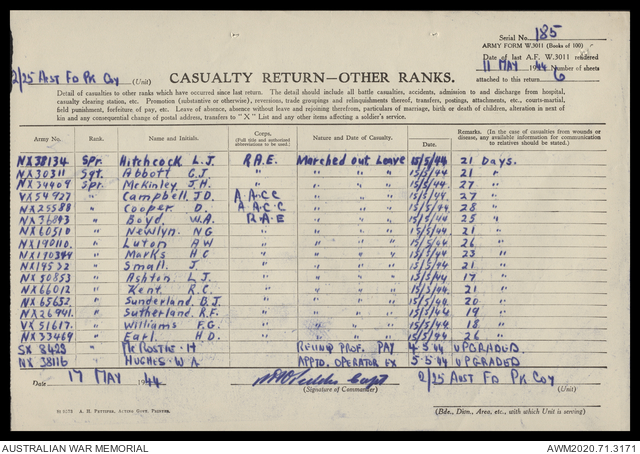 Serial No. 185
ARMY FORM W.3011 (Books of 100)
Date of last A.F. W.3011 rendered
11 MAY 1944 Number of sheets
attached to this return 6
2/25 Aust Fd Pk Coy (Unit)
CASUALTY RETURN—OTHER RANKS.
Detail of casualties to other ranks which have occurred since last return. The detail should include all battle casualties, accidents, admission to and discharge from hospital,
casualty clearing station, etc. Promotion (substantive or otherwise), reversions, trade groupings and relinquishments thereof, transfers, postings, attachments, etc., courts-martial,
field punishment, forfeiture of pay, etc. Leave of absence, absence without leave and rejoining therefrom, particulars of marriage, birth or death of children, alteration in next of
kin and any consequential change of postal address, transfers to "X" List and any other items affecting a soldier's service.
Army No. Rank. Name and Initials. Corps. (Full title and authorized abbreviations to be used.) Nature and Date of Casualty. Date. Remarks. (In the case of casualties from wounds or disease, any available information for communication to relatives should be stated.)
NX38134 Spr. Hitchcock L.J. R.A.E. Marched out Leave 15/5/44 21 Days.
NX30311 Sgt. Abbott C.J. " " " " 15/5/44 21 "
NX34409 Spr. McKinley J.H. " " " " 15/5/44 27 "
VX54927 " Campbell J.D. A.A.C.C. " " " 15/5/44 27 "
NX25588 " Cooper D. A.A.C.C. " " " 15/5/44 28 "
NX36893 " Boyd W.A. R.A.E " " " 15/5/44 25 "
NX60510 " Newlyn NG " " " " 15/5/44 21 "
NX190110. " Luton AW " " " " 15/5/44 26 "
NX170344 " Marks H C " " " " 15/5/44 23 "
NX19532 " Small J " " " " 15/5/44 21 "
NX50853 " Ashton L.J. " " " " 15/5/44 17 "
NX66012 " Kent R.C. " " " " 15/5/44 21 "
NX65652 " Sunderland B.J. " " " " 15/5/44 20 "
NX26941. " Sutherland R.F. " " " " 15/5/44 19 "
VX51617. " Williams F.G. " " " " 15/5/44 18 "
NX33469 " Earl H D. " " " " 15/5/44 26 "
SX 8423 " McRostie. H PROF. PAY 4.5.44 UPGRADED.
NX 38116 " HUGHES W.A. APPTD. OPERATOR EX 5.5.44 UPGRADED
Date 17 MAY 1944 Capt 2/25 Aust Fd Pk Coy (Unit)
(Signature of Commander)
(Bde., Divn., Area, etc., with which Unit is serving)
AUSTRALIAN WAR MEMORIAL AWM2020.71.3171